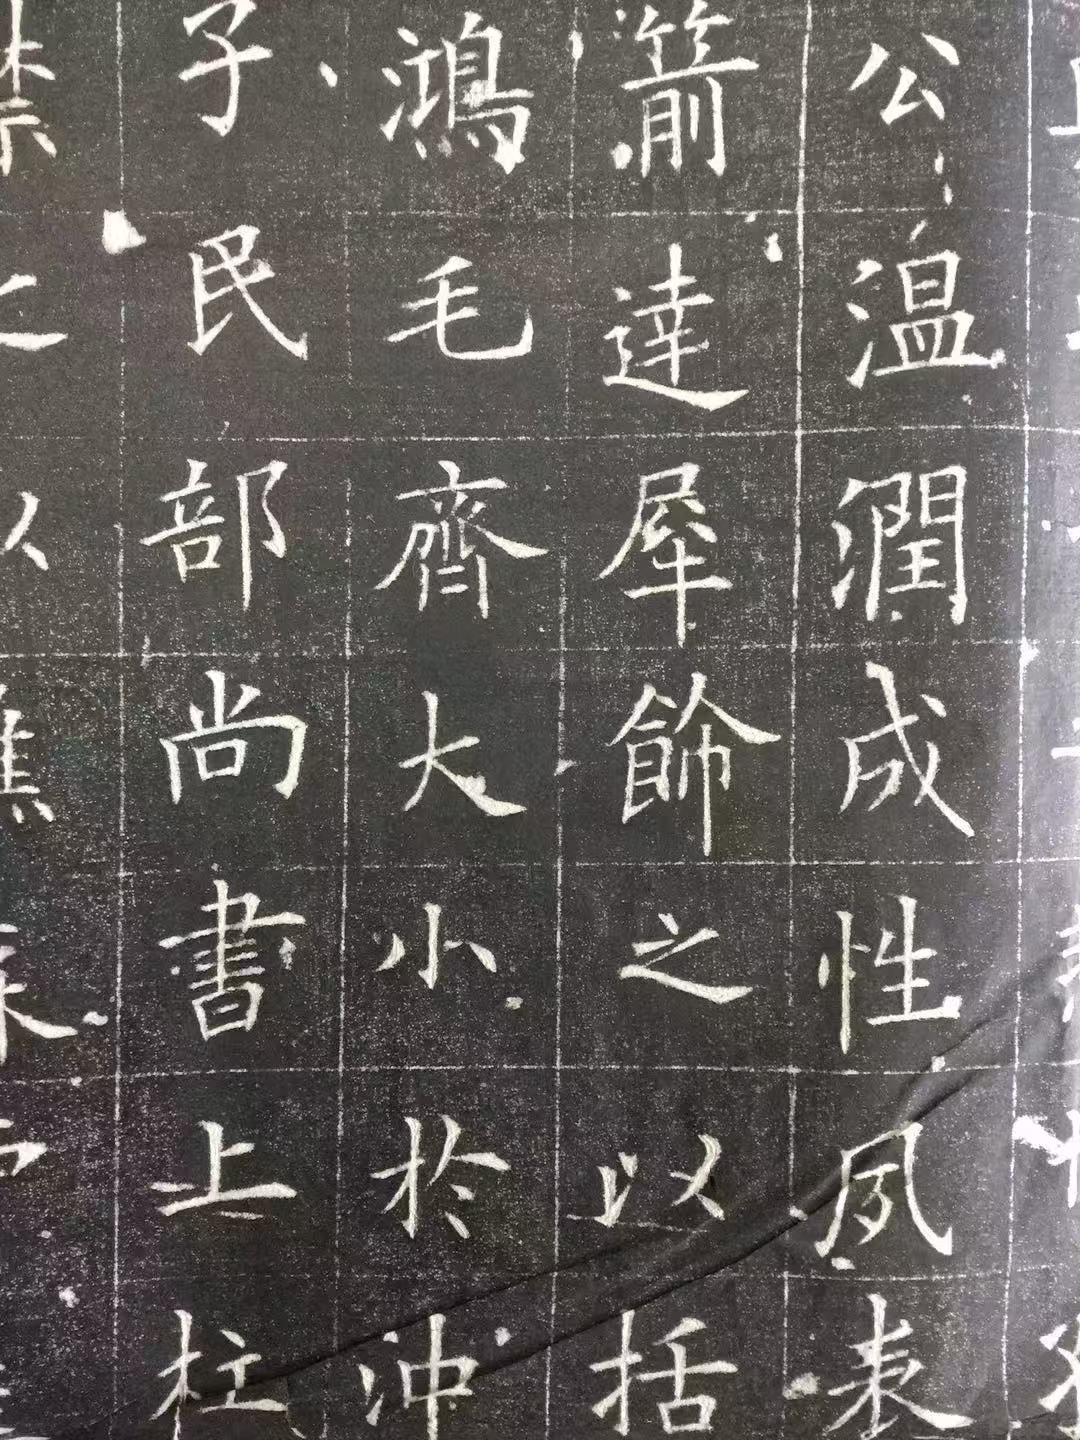 公温潤成性夙表
箭達犀飾之以括
鴻毛齊大小於沖
子民部尚書上柱